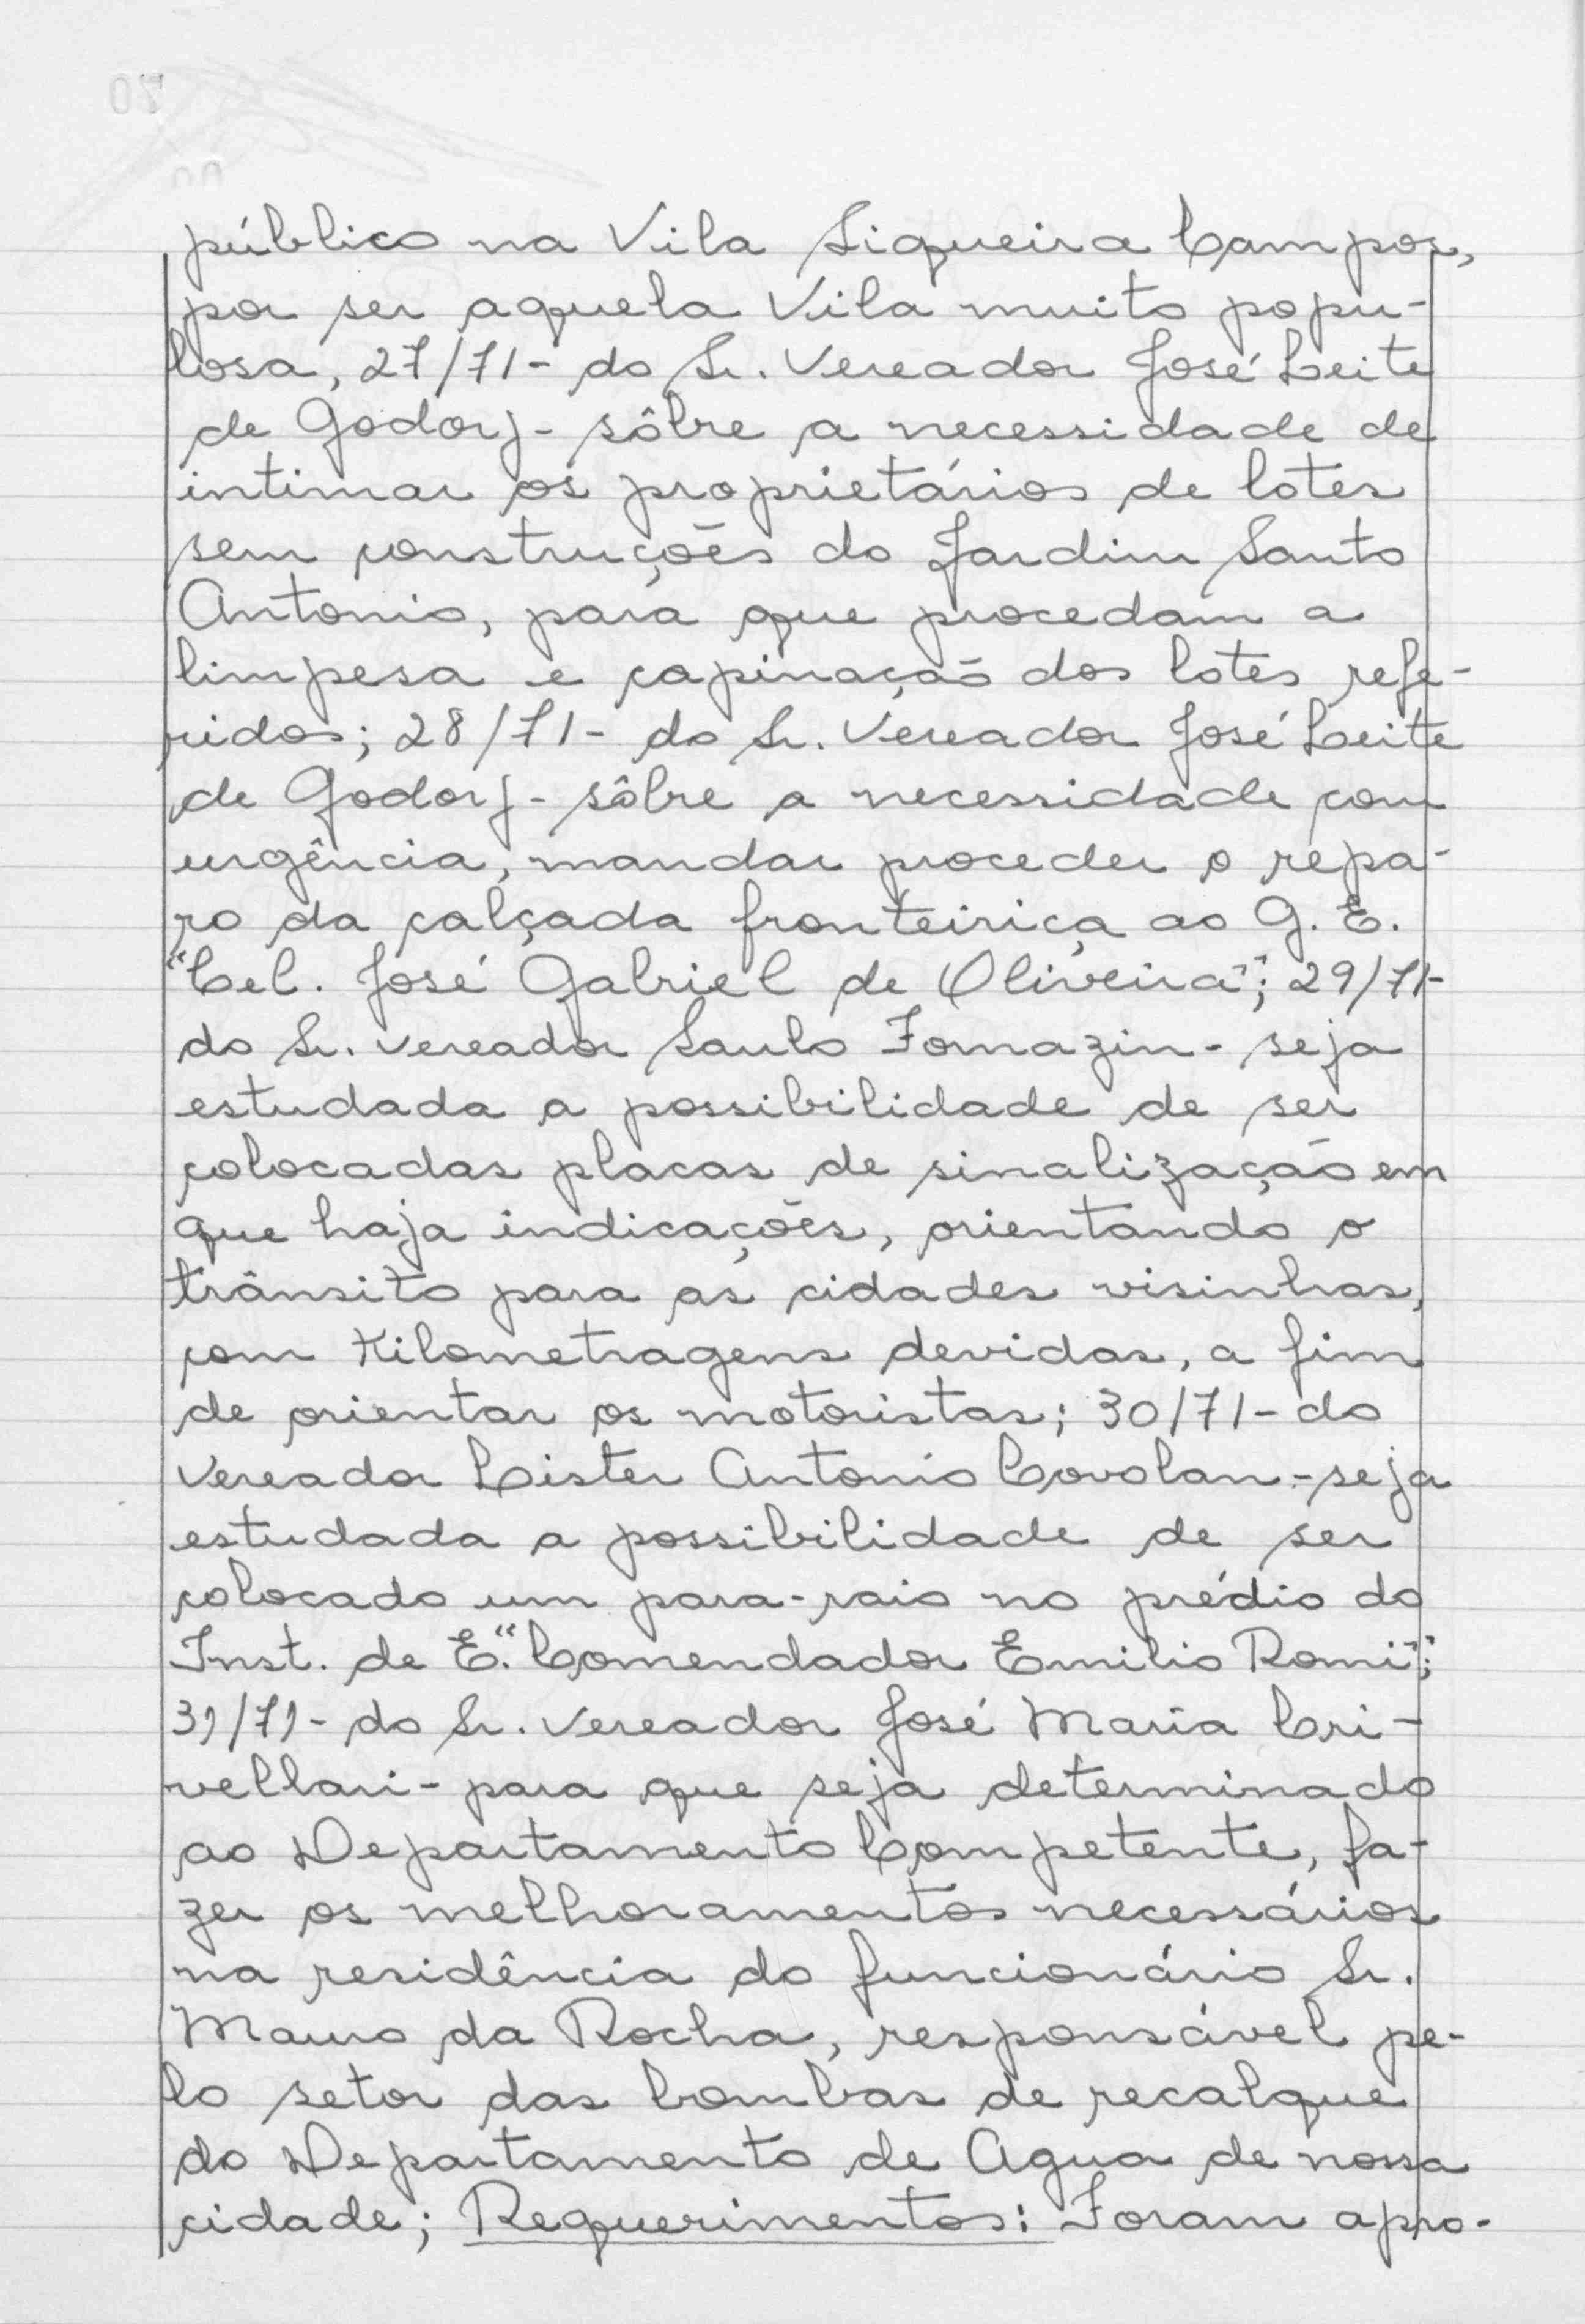 público na Vila Siqueira Campos,
por ser aquela Vila muito popu-
losa, 27/71- do Sr. Vereador José Leite
de Godoy- sôbre a necessidade de
intimar os proprietários de lotes
sem construções do Jardim Santo
Antonio, para que procedam a
limpesa e capinação dos lotes refe-
ridos; 28/71- do Sr. Vereador José Leite
de Godoy- sôbre a necessidade com
urgência, mandar proceder o repa-
ro da calçada fronteiriça ao G. E.
"Cel. José Gabriel de Oliveira"; 29/71-
do Sr. vereador Saulo Fornazin- seja
estudada a possibilidade de ser
colocadas placas de sinalização em
que haja indicações, orientando o
trânsito para as cidades visinhas,
com Kilometragens devidas, a fim
de orientar os motoristas; 30/71- do
Vereador Lister Antonio Covolan-seja
estudada a possibilidade de ser
colocado um para-raio no prédio do
Inst. de E. "Comendador Emilio Romi";
31/71- do Sr. vereador José Maria Cri-
vellari- para que seja determinado
ao Departamento Competente, fa-
zer os melhoramentos necessários
na residência do funcionário Sr.
Mauro da Rocha, responsável pe-
lo setor das bombas de recalque
do Departamento de Agua de nossa
cidade; Requerimentos: Foram apro-